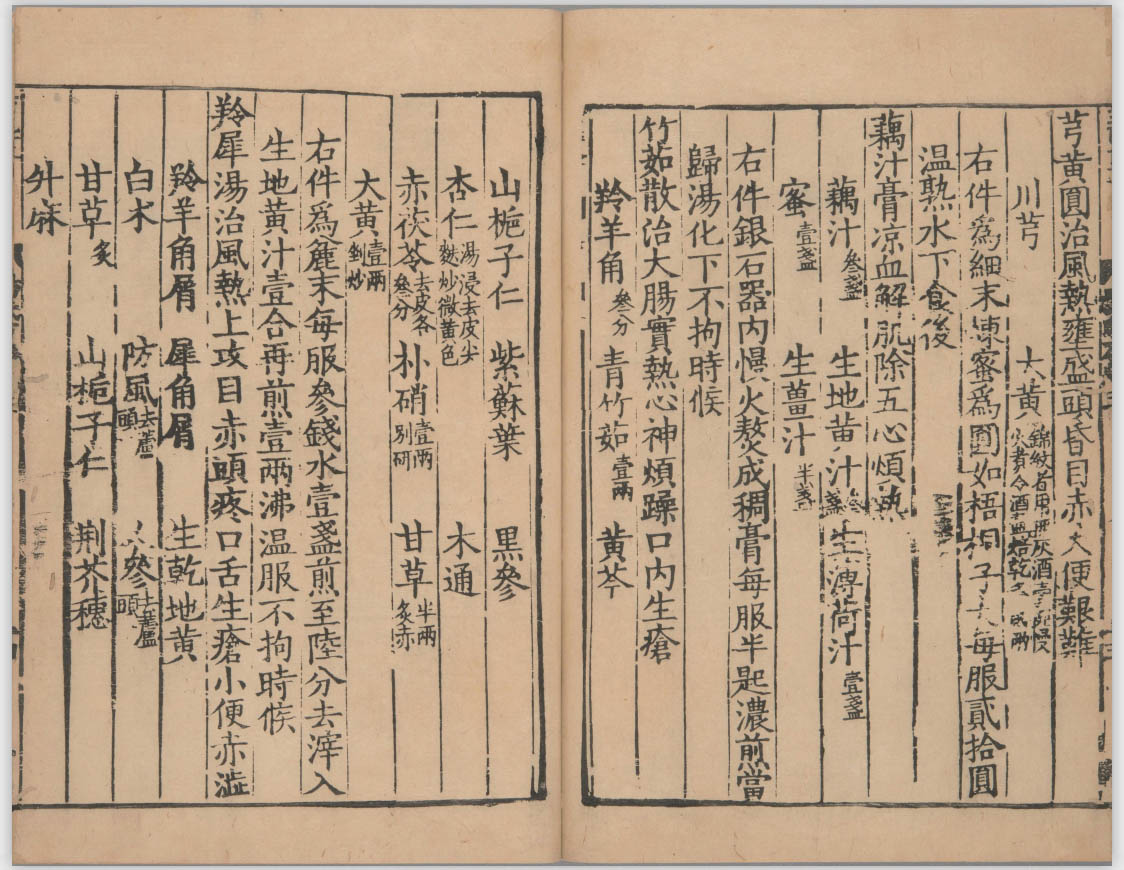 芎黃圓治風熱壅盛頭昏目赤大便艱難
川芎 大黃錦紋者用
右件為細末煉蜜為圓如梧桐子大每服貳拾圓
温熟水下食後
藕汁膏凉血解肌除五心煩熱
藕汁叁盞 生地黃汁 生薄荷汁壹盞
蜜壹盞 生薑汁半盞
右件銀石器內慢火熬成稠膏每服半匙濃煎當
歸湯化下不拘時候
竹茹散治大腸實熱心神煩躁口內生瘡
羚羊角叁分 青竹茹壹兩 黃芩
山梔子仁 紫蘇葉 黑參
杏仁湯浸去皮尖麩炒微黃色 木通
赤茯苓去皮各叁分 朴硝壹兩別研 甘草半兩炙赤
大黃壹兩剉炒
右件為麄末每服參錢水壹盞煎至陸分去滓入
生地黃汁壹合再煎壹兩沸温服不拘時候
羚犀湯治風熱上攻目赤頭疼口舌生瘡小便赤澁
羚羊角屑 犀角屑 生乾地黃
白朮 防風去蘆頭 人參去蘆頭
甘草炙 山梔子仁 荆芥穗
升麻